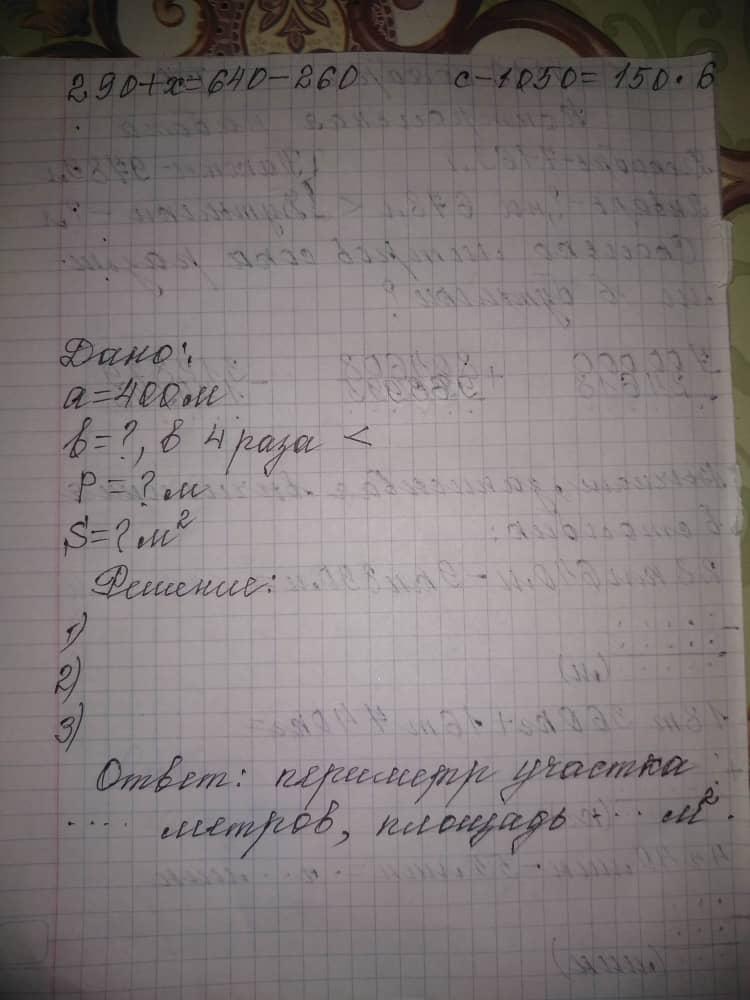 290+x=640-260 c-1050=150·6
Дано:
a=400м
b=?, в 4 раза <
P=?м
S=?м²
Решение:
1)
2)
3)
Ответ: периметр участка
.... метров, площадь ... м².